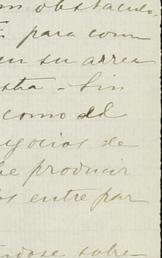 obstáculo
para com
en su arrea
stra - Sin
como el
egocios de
e producir
os entre par
ndose sobre